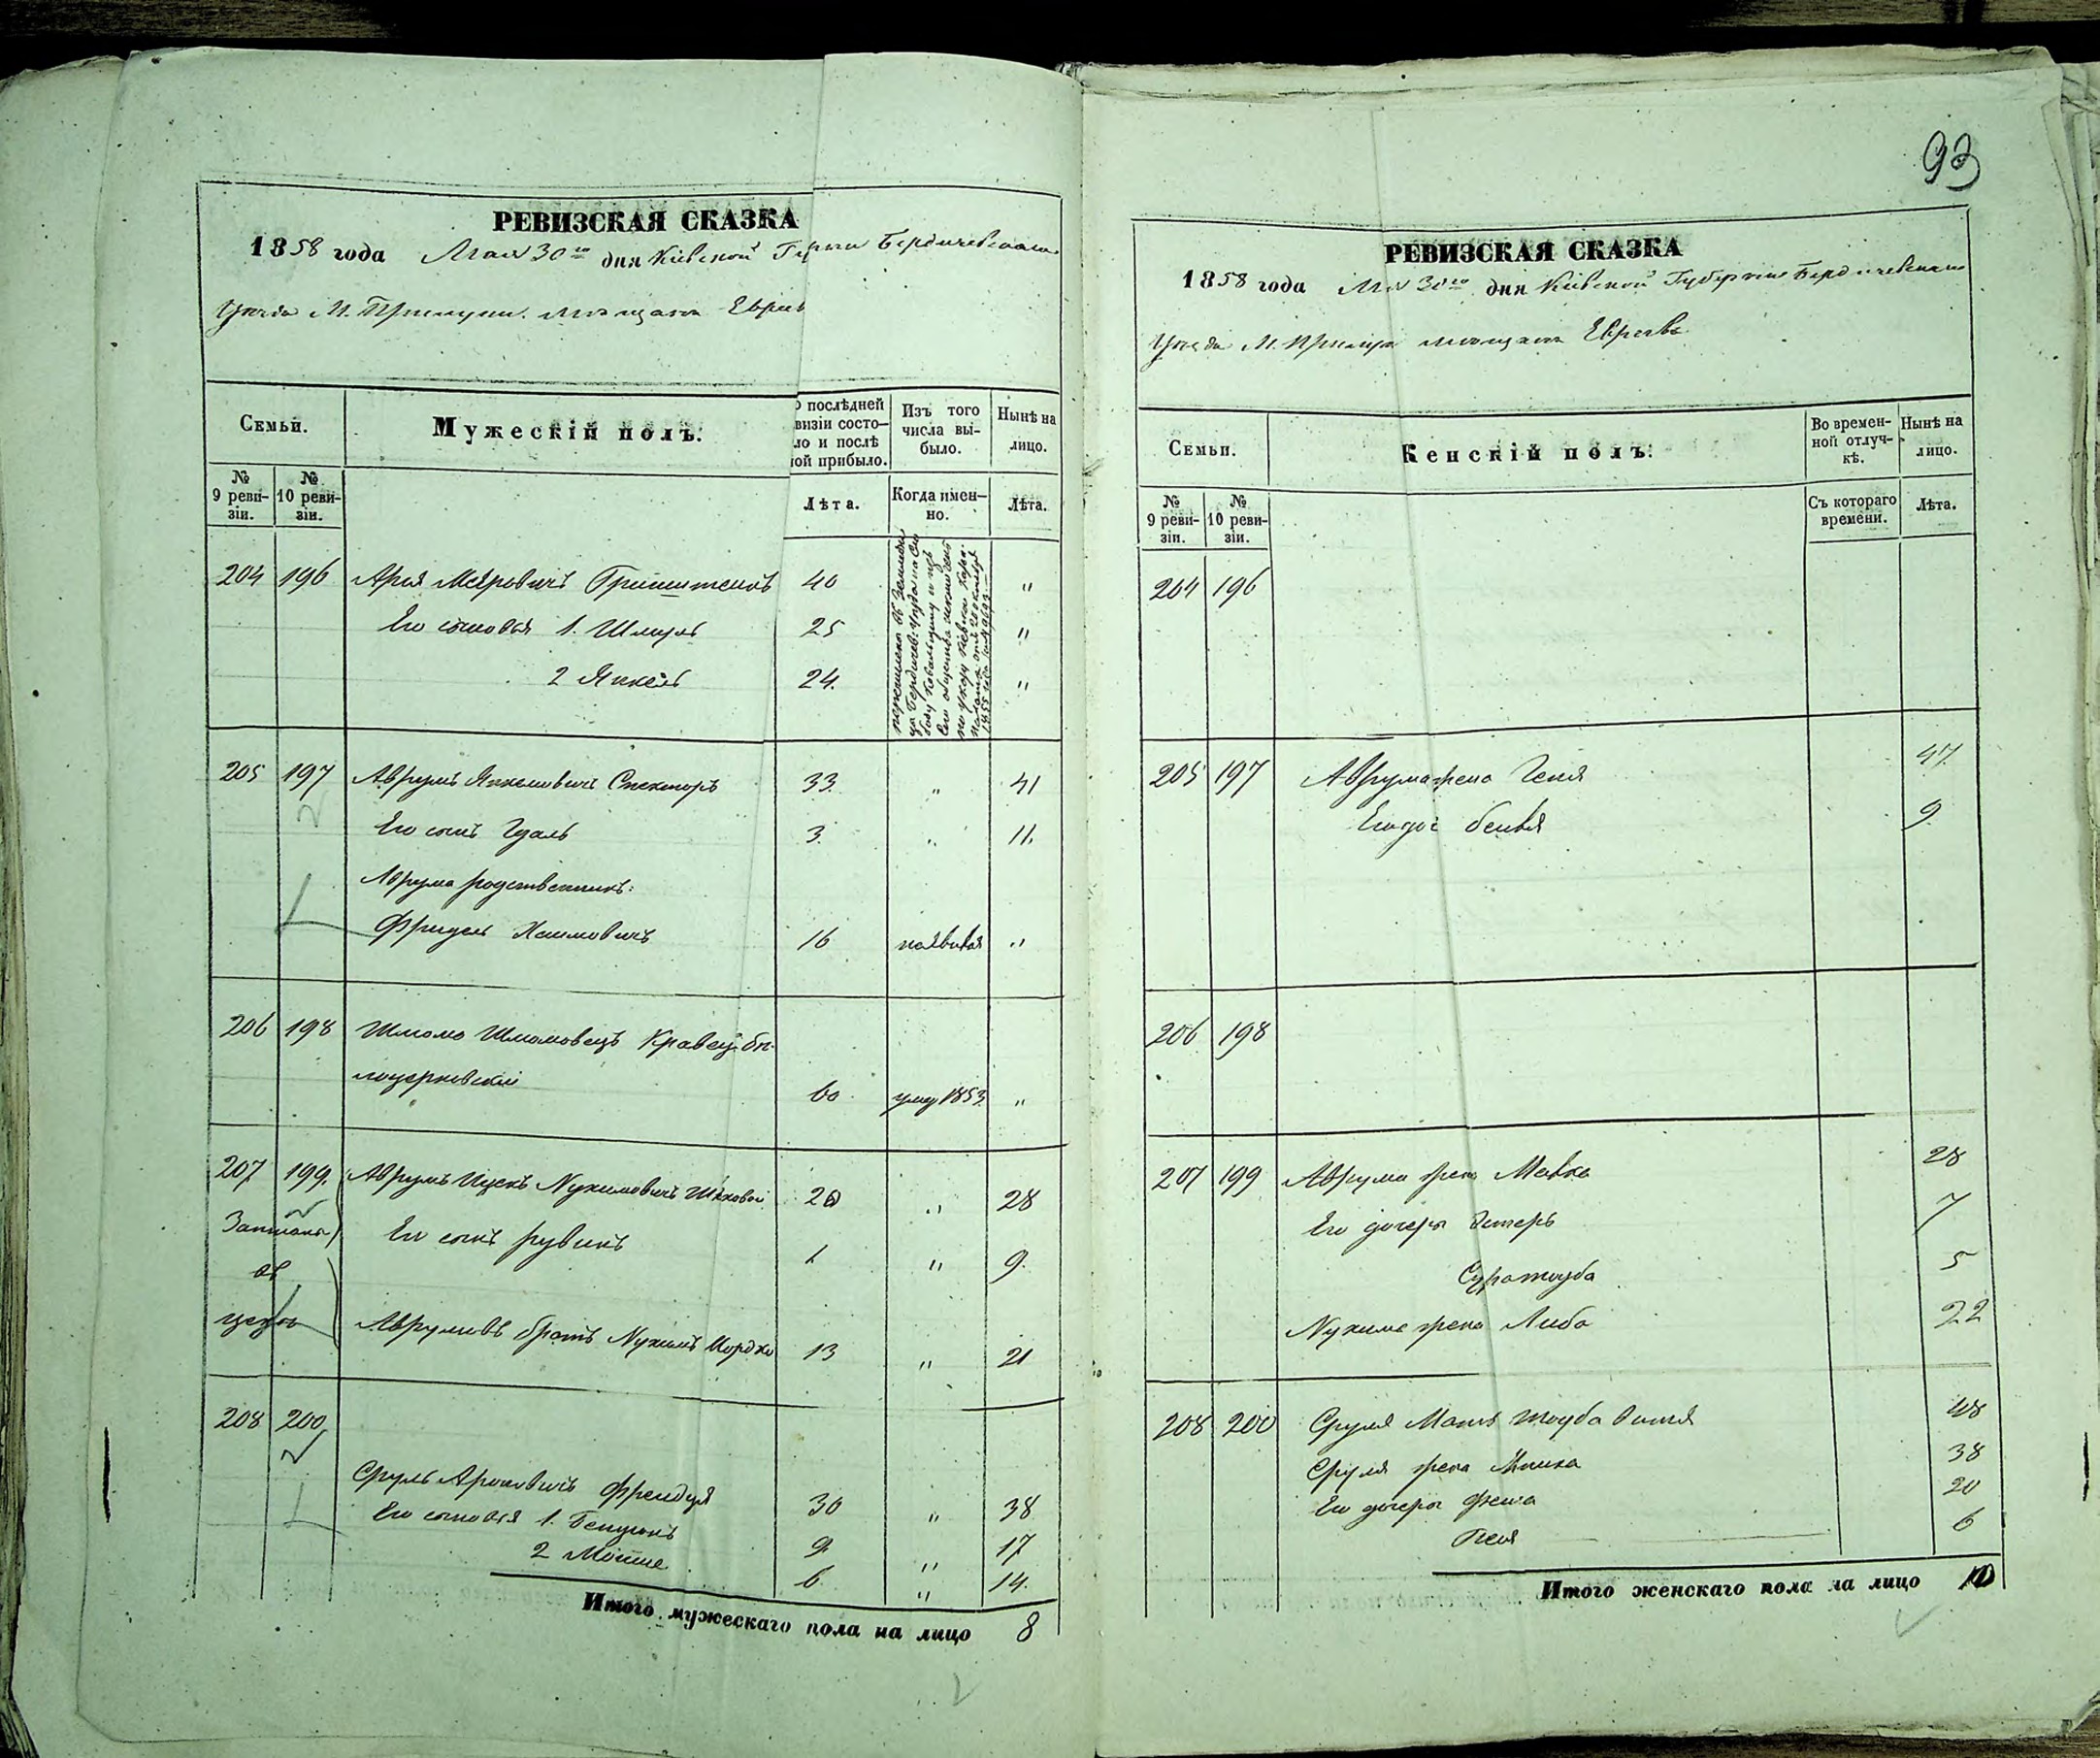 93
РЕВИЗСКАЯ СКАЗКА
1858 года Мая 30го дня Кіевской Бердичевскаго
Уѣзда М. мѣщанъ Евреѣвъ
Семьи.
Мужескій полъ.
послѣдней
визіи состо-
ло и послѣ
ой прибыло.
Изъ того
числа вы-
было.
Нынѣ на
лицо.
№
9 реви-
зіи.
№
10 реви-
зіи.
Лѣта.
Когда имен-
но.
Лѣта.
204 196 Арья Меяровичъ 40 "
Его сыновья 1. Шмуль 25 "
2 Янкель 24. "
205 197 Аврумъ Янкелевичъ Спекторъ 33. " 41
Его сынъ Удаль 3. " 11.
Аврума родственникъ:
Фридель Хаимовичъ 16 "
206 198 Шлiомо Шлiомовецъ Кравецъ бѣ-
лоцерковскiй 60 умеръ 1853. "
207. 199. Аврумъ Ицекъ Нухимовичъ 20 " 28
Его сынъ Рувинъ 1 " 9.
въ
цехъ
Аврумовъ братъ Нухимъ Мордко 13 " 21
208 200
Сруль Ароновичъ 30 " 38
Его сыновья 1. Бенционъ 9 " 17
2 Мойше 6 " 14.
Итого мужескаго пола на лицо 8
РЕВИЗСКАЯ СКАЗКА
1858 года Мая 30го дня Кіевской Губерніи Бердичевскаго
Уѣзда М. мѣщанъ Евреѣвъ
Семьи.
Женскій полъ.
Во времен-
ной отлуч-
кѣ.
Нынѣ на
лицо.
№
9 реви-
зіи.
№
10 реви-
зіи.
Съ котораго
времени.
Лѣта.
204 196
205 197 Аврума жена Геня 47.
Его дочь Бейля 9
206 198
207 199 Аврума жена Малка 28
Его дочери Эстеръ 7
Суратауба 5
Нухима жена Либа 22
208 200 Сруля Мать 48
Сруля жена 38
Его дочери 20
Песя 6
Итого женскаго пола на лицо 10